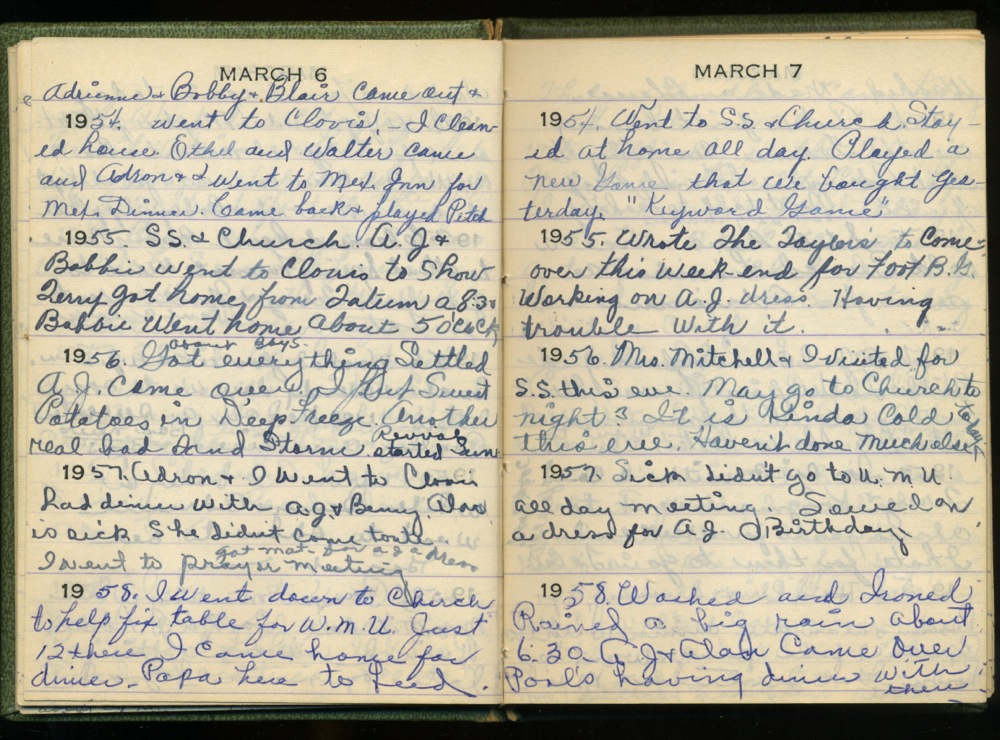 MARCH 6
Adrienne & Bobby & Blair came out &
1954. went to Clovis. - I Clean-
ed house. Ethel and Walter came
and Adron & I went to Mex. Inn for
Mex. Dinner. Came back & played Pitch
1955 SS. & Church. A.J &
Bobbie went to Clovis to Show
Terry got home from Tatum a 8:30
Bobbie Went home about 5 O'Clock
about boys.
1956. Got everything Settled
A.J. Came over I put Sweet
Potatoes in Deep Freeze. Another
real bad Sand Storm Revival
started Sun
1957. Adron & I Went to Clovis
had dinner with A.J. & Benny Alan
is sick She didnt come
got mat. for A J a dress
I went to prayer meeting
1958. I went down to Church
to help fix table for W.M.U. Just
12 there I came home for
dinner. Papa here to feed.
MARCH 7
1954. Went to S.S. & Church. Stay-
ed at home all day. Played a
new Game that we bought yes-
terday. "Keyword Game"
1955. Wrote The Taylors to Come-
over this week-end for Foot B. G.
Working on A.J. dress. Having
trouble with it.
1956. Mrs. Mitchell & I visited for
S.S. this eve. May go to Church to
night? It is Kinda Cold today
this eve. Haven't done much else
1957. Sick didn't go to W.M.U.
all day meeting. Sewed on
a dress for A.J. Birthday
1958. Washed and Ironed
Rained a big rain about
6:30. A.J & Alan Came Over
Pool's having dinner with
them